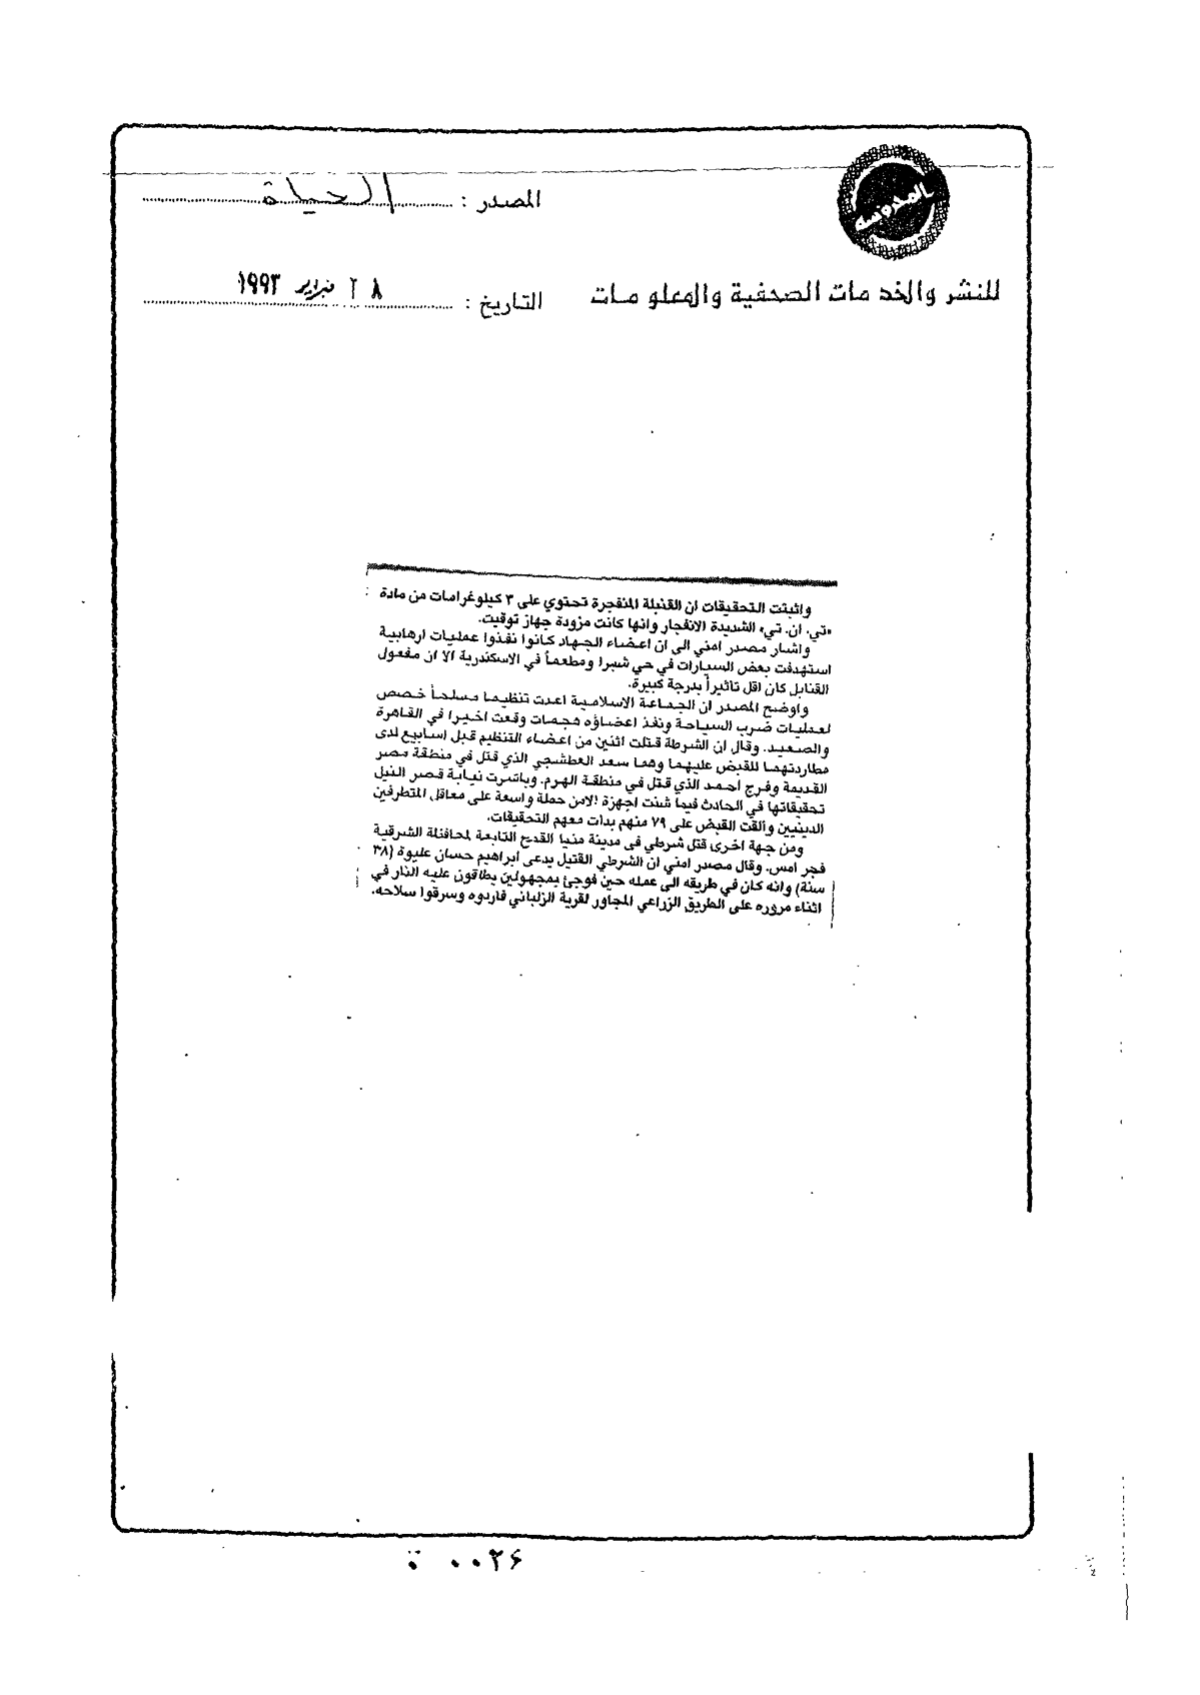 المصدر : الحياة
للنشر والخدمات الصحفية والمعلومات
التاريخ : ٢٨ فبراير ١٩٩٣
واثبتت التحقيقات ان القنبلة المنفجرة تحتوي على ٣ كيلوغرامات من مادة
«تي. ان. تي» الشديدة الانفجار وانها كانت مزودة جهاز توقيت.
واشار مصدر امني الى ان اعضاء الجهاد كانوا نفذوا عمليات ارهابية
استهدفت بعض السيارات في حي شبرا ومطعماً في الاسكندرية الا ان مفعول
القنابل كان اقل تاثيراً بدرجة كبيرة.
واوضح المصدر ان الجماعة الاسلامية اعدت تنظيما مسلحاً خصص
لعمليات ضرب السياحة ونفذ اعضاؤه هجمات وقعت اخيرا في القاهرة
والصعيد. وقال ان الشرطة قتلت اثنين من اعضاء التنظيم قبل اسابيع لدى
مطاردتهما للقبض عليهما وهما سعد العطشجي الذي قتل في منطقة مصر
القديمة وفرج احمد الذي قتل في منطقة الهرم. وباشرت نيابة قصر النيل
تحقيقاتها في الحادث فيما شنت اجهزة الامن حملة واسعة على معاقل المتطرفين
الدينيين والقت القبض على ٧٩ منهم بدات معهم التحقيقات.
ومن جهة اخرى قتل شرطي في مدينة منيا القمح التابعة لمحافظة الشرقية
فجر امس. وقال مصدر امني ان الشرطي القتيل يدعى ابراهيم حسان عليوة (٣٨
سنة) وانه كان في طريقه الى عمله حين فوجئ بمجهولين يطلقون عليه النار في
اثناء مروره على الطريق الزراعي المجاور لقرية الزلباني فاردوه وسرقوا سلاحه.